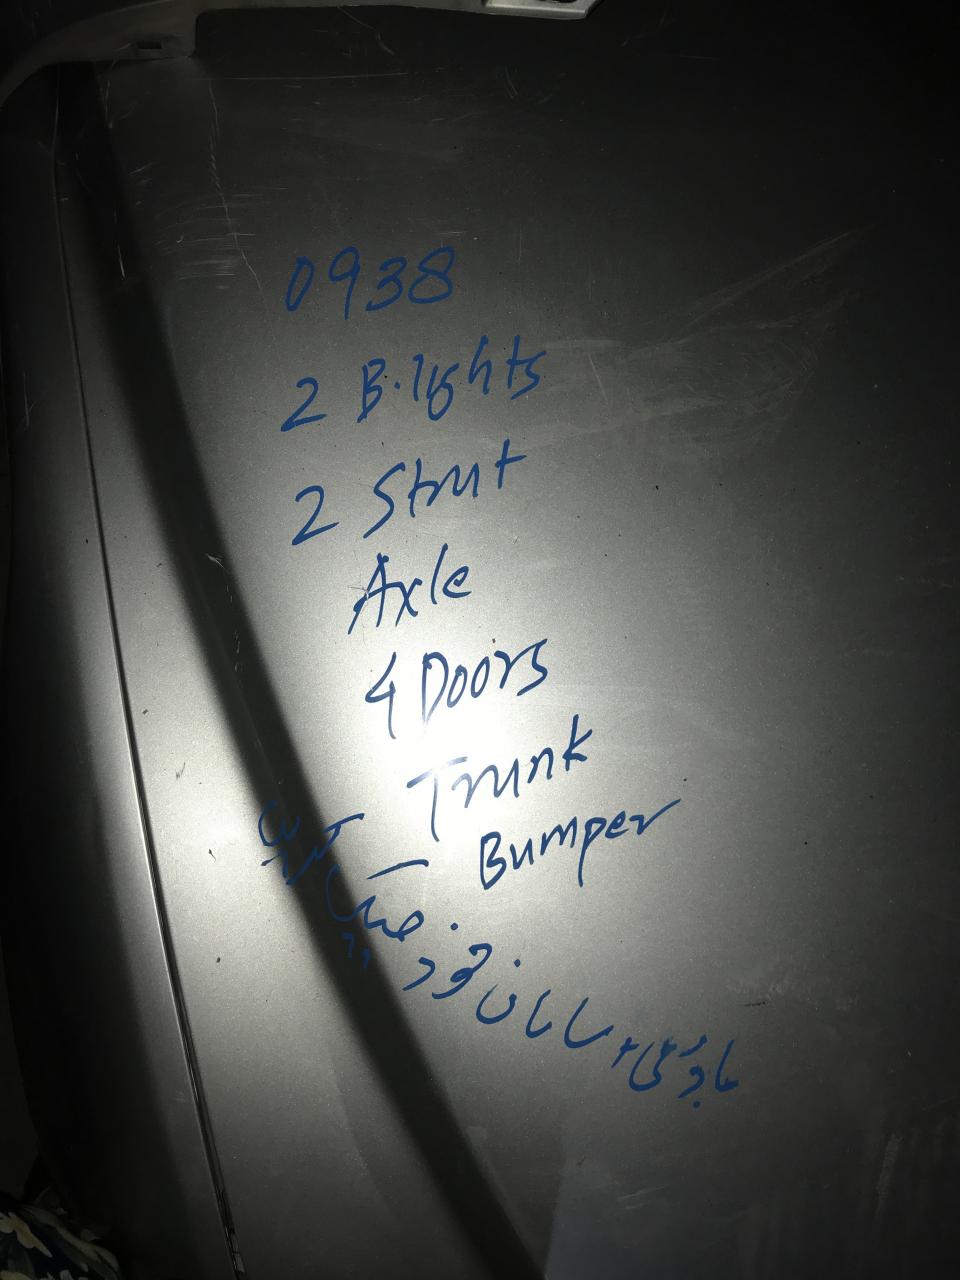 0938
2 B.lights
2 Strut
Axle
4 Doors
Trunk
Bumper
سامان